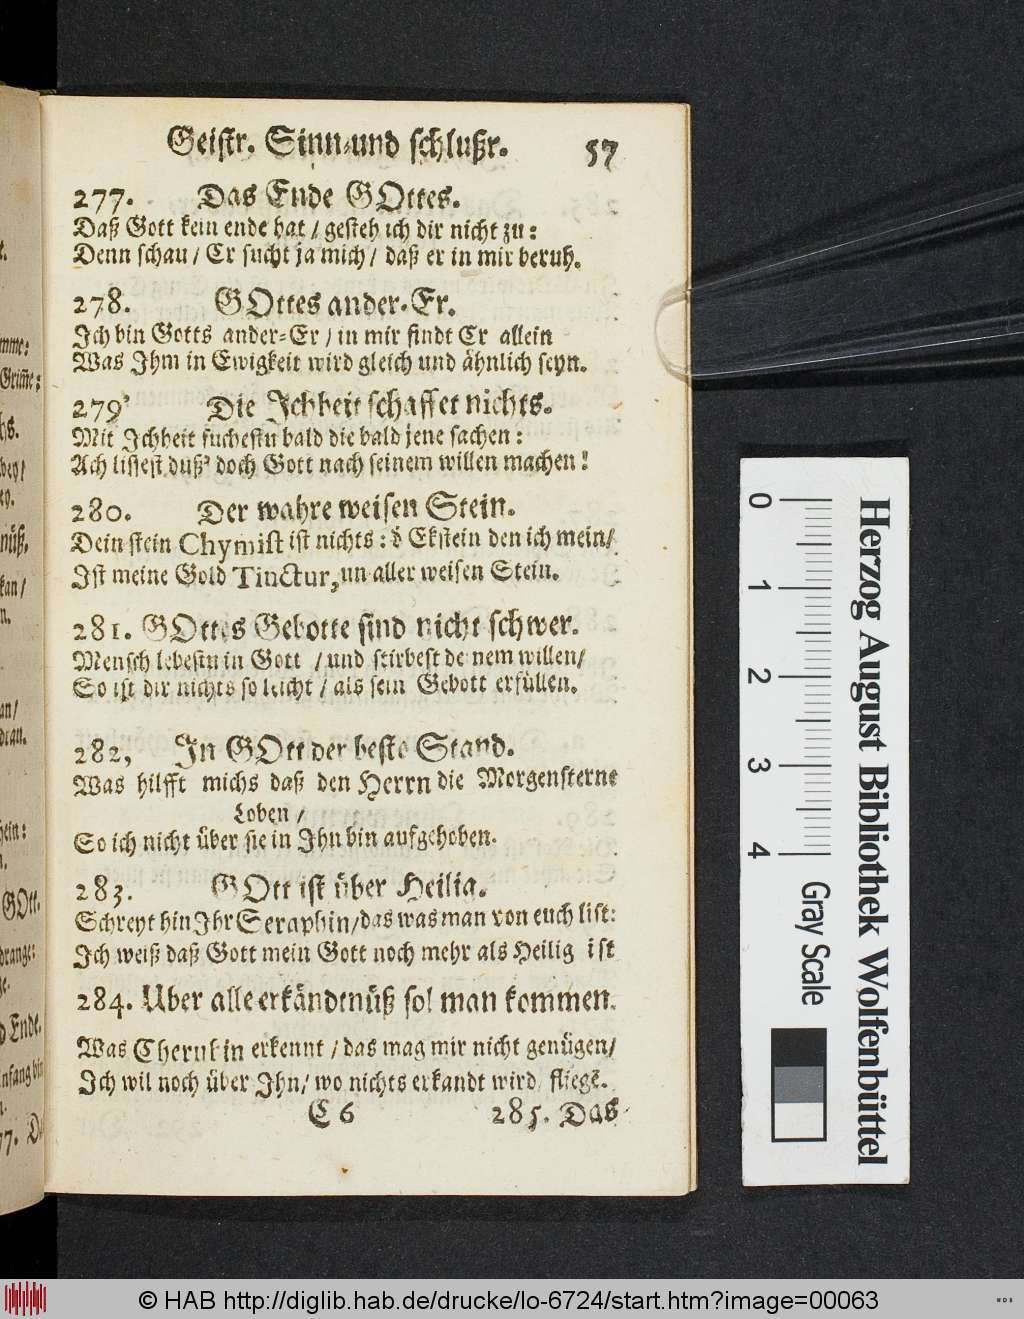 Geistr. Sinn-und schlußr. 57
277. Das Ende GOttes.
Daß Gott kein ende hat / gesteh ich dir nicht zu:
Denn schau / Er sucht ja mich / daß er in mir beruh.
278. GOttes ander-Er.
Ich bin Gotts ander-Er / in mir findt Er allein
Was Ihm in Ewigkeit wird gleich und ähnlich seyn.
279. Die Ichheit schaffet nichts.
Mit Ichheit suchestu bald die bald jene sachen:
Ach liessest duß' doch Gott nach seinem willen machen!
280. Der wahre weisen Stein.
Dein stein Chymist ist nichts: d Ekstein den ich mein/
Ist meine Gold Tinctur, un aller weisen Stein.
281. GOttes Gebotte sind nicht schwer.
Mensch lebestu in Gott / und stirbest deinem willen/
So ist dir nichts so leicht / als sein Gebott erfüllen.
282, In GOtt der beste Stand.
Was hilfft michs daß den Herrn die Morgensterne
Loben /
So ich nicht über sie in Ihn bin aufgehoben.
283. GOtt ist über Heilig.
Schreyt hin Ihr Seraphin/das was man von euch list:
Ich weiß daß Gott mein Gott noch mehr als Heilig ist
284. Uber alle erkändtnüß sol man kommen.
Was Cherubin erkennt / das mag mir nicht genügen/
Ich wil noch über Ihn/ wo nichts erkandt wird fliegē.
C 6 285. Das
mme:
Grim̄e:
bey/
nüß.
kan/
n.
an/
hein:
GOtt.
drange:
Ende.
nfang bin
77. D
0 1 2 3 4
Gray Scale
Herzog August Bibliothek Wolfenbüttel
© HAB http://diglib.hab.de/drucke/lo-6724/start.htm?image=00063
WDB